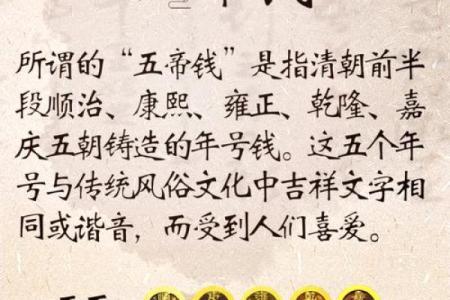 所谓的“五帝钱”是指清朝前半
段顺治、康熙、雍正、乾隆、嘉
庆五朝铸造的年号钱。这五个年
号与传统风俗文化中吉祥文字相
同或谐音，而受到人们喜爱。